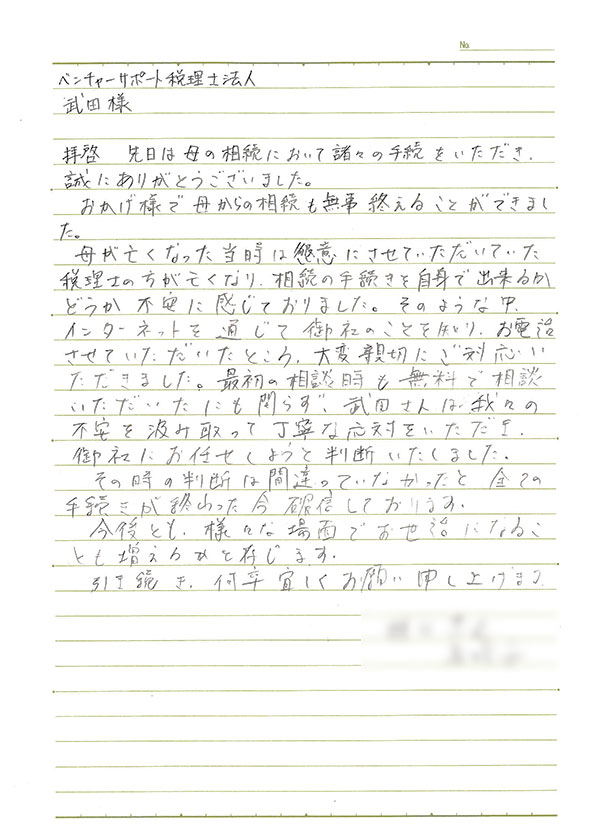 No.
ベンチャーサポート税理士法人
武田様
拝啓 先日は母の相続において諸々の手続をいただき、
誠にありがとうございました。
おかげ様で母からの相続も無事終えることができまし
た。
母が亡くなった当時は懇意にさせていただいていた
税理士の方が亡くなり、相続の手続きを自身で出来るか
どうか不安に感じておりました。そのような中、
インターネットを通じて御社のことを知り、お電話
させていただいたところ、大変親切にご対応い
ただきました。最初の相談時も無料で相談
いただいたにも関らず、武田さんは我々の
不安を汲み取って丁寧な応対をいただき、
御社にお任せしようと判断いたしました。
その時の判断は間違っていなかったと全ての
手続きが終わった今確信しております。
今後とも、様々な場面でお世話になるこ
とも増えるかと存じます。
引き続き、何卒宜しくお願い申し上げます